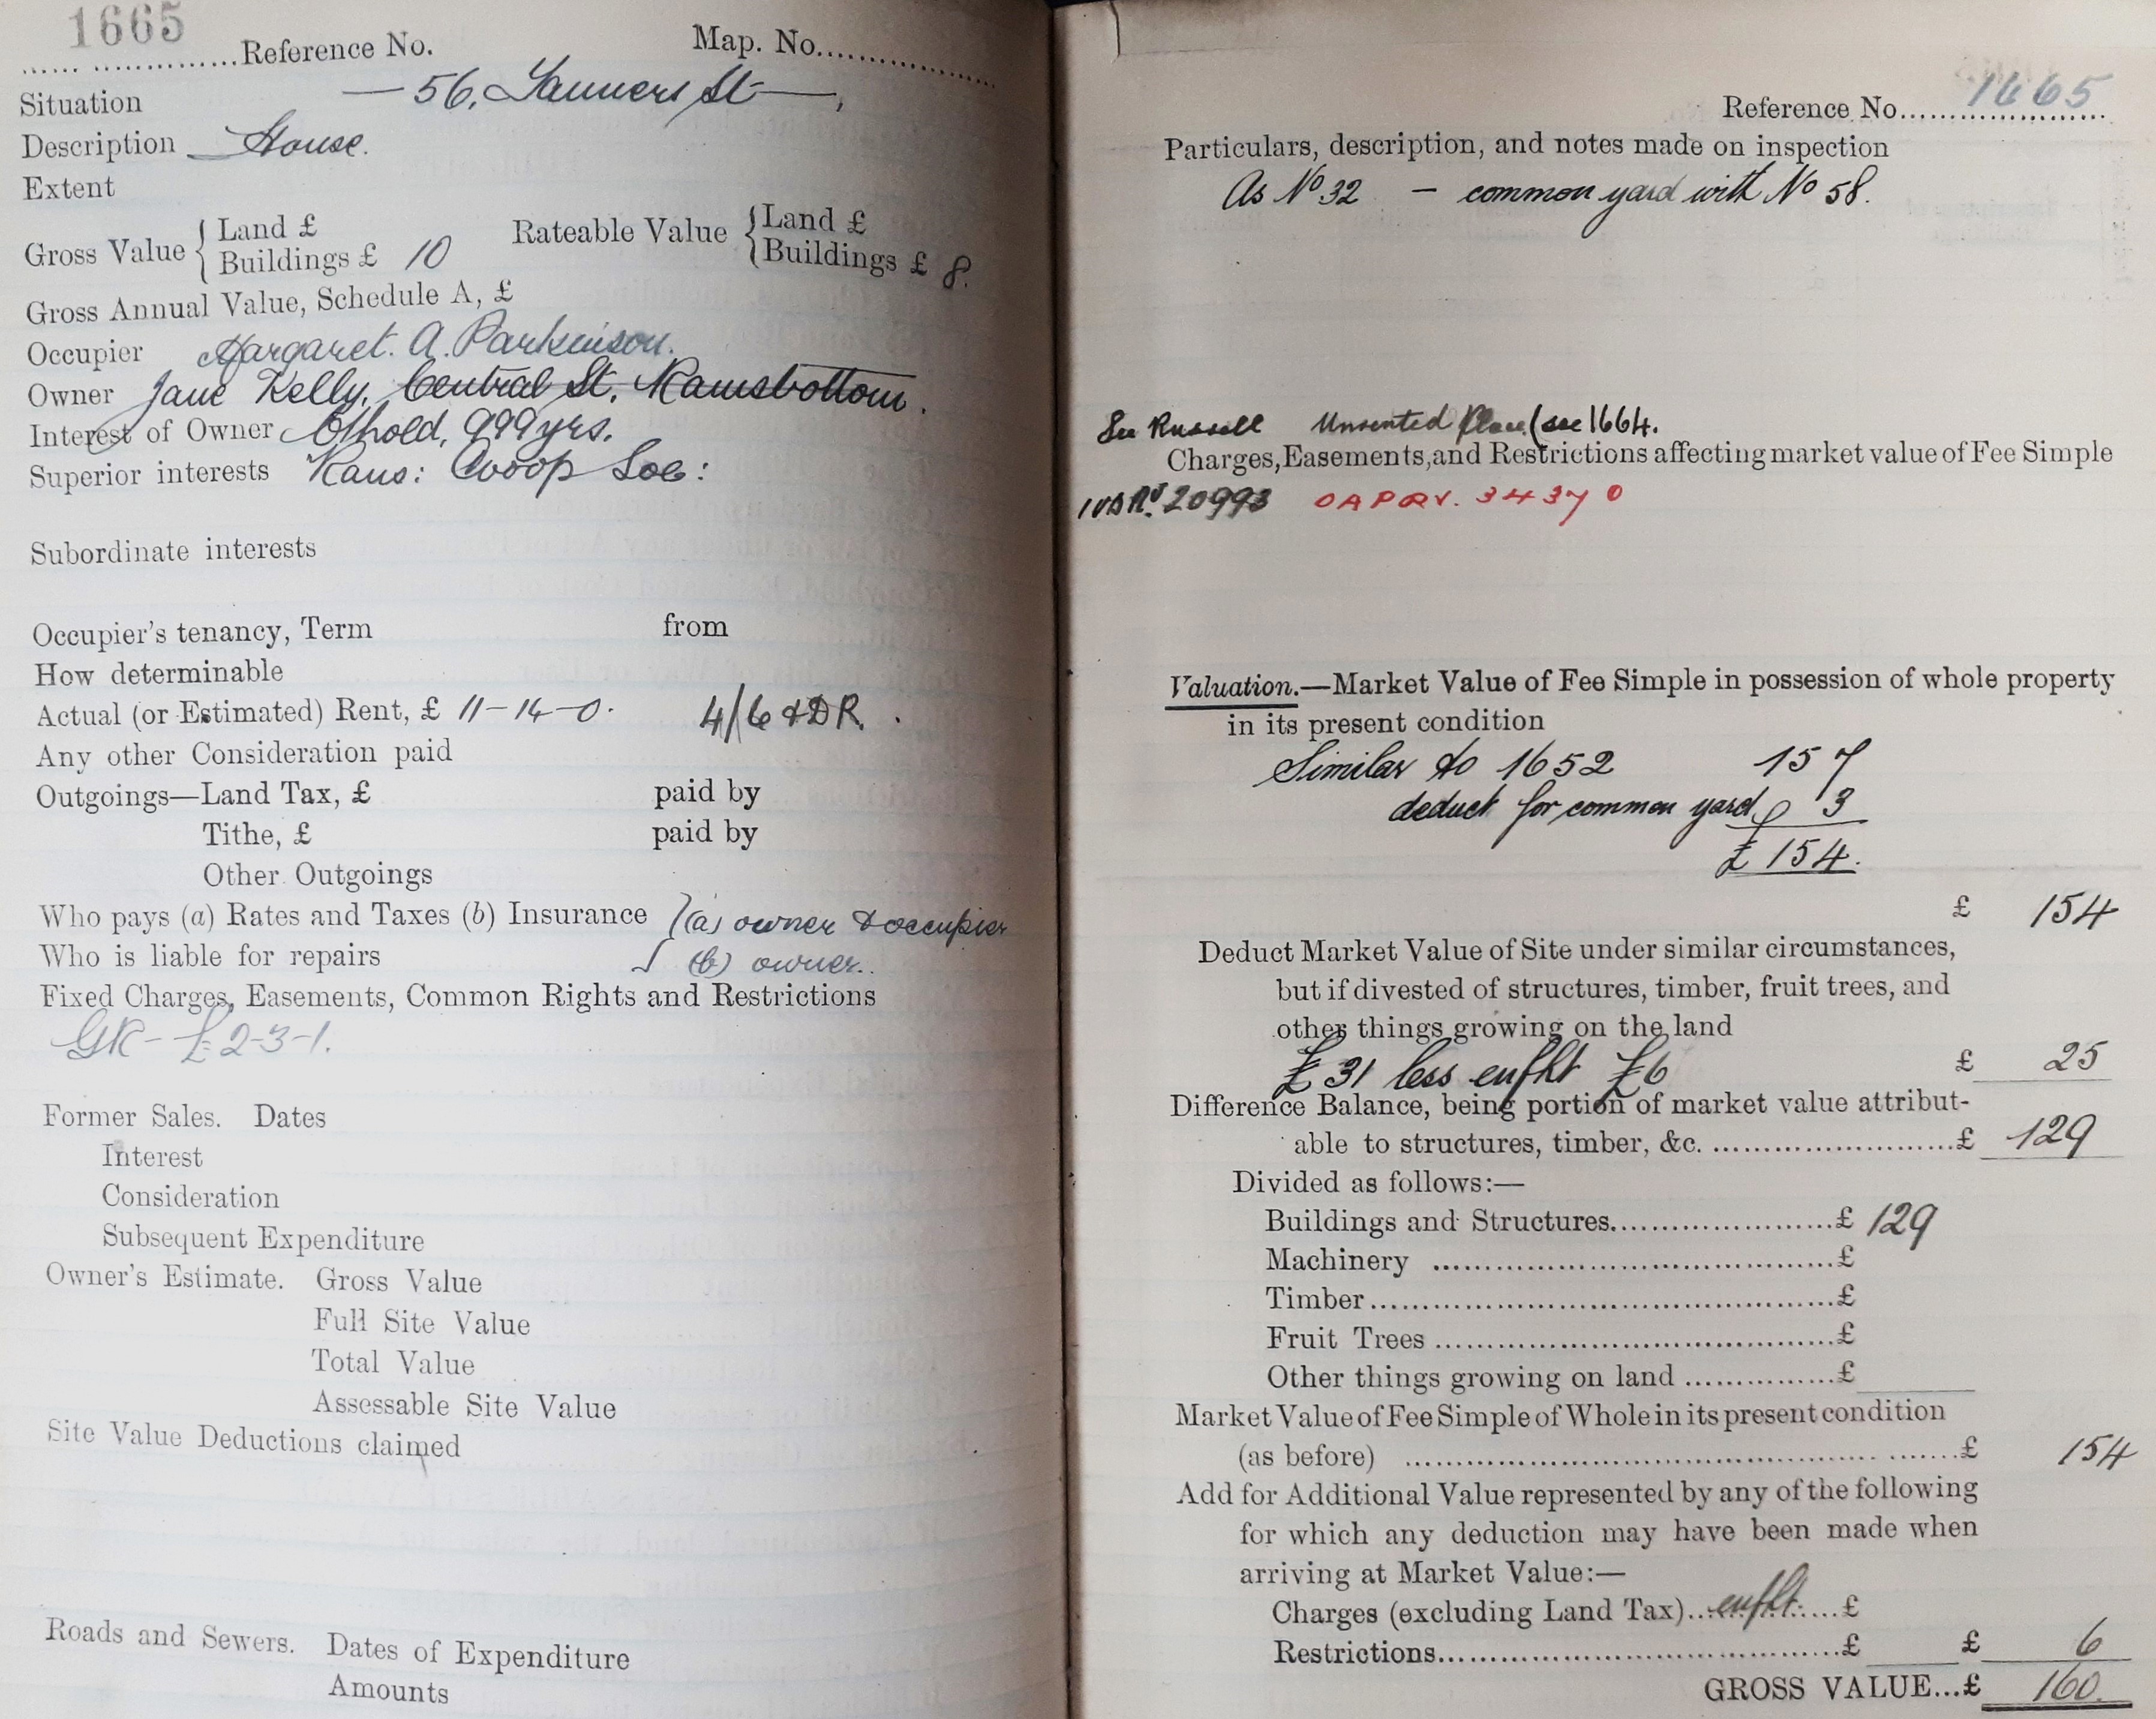 1665
...... ..............Reference No. Map. No....................
Situation — 56, Tanners St —,
Description — House.
Extent
Gross Value { Land £ Rateable Value { Land £
Buildings £ 10 Buildings £ 8.
Gross Annual Value, Schedule A, £
Occupier Margaret. A. Parkinson.
Owner Jane Kelly, Central St, Ramsbottom.
Interest of Owner Lhold, 999 yrs.
Superior interests Rams: Coop Soc:
Subordinate interests
Occupier's tenancy, Term from
How determinable
Actual (or Estimated) Rent, £ 11-14-0. 4/6 & DR.
Any other Consideration paid
Outgoings—Land Tax, £ paid by
Tithe, £ paid by
Other Outgoings
Who pays (a) Rates and Taxes (b) Insurance } (a) owner & occupier
Who is liable for repairs (b) owner..
Fixed Charges, Easements, Common Rights and Restrictions
GR - £2-3-1.
Former Sales. Dates
Interest
Consideration
Subsequent Expenditure
Owner's Estimate. Gross Value
Full Site Value
Total Value
Assessable Site Value
Site Value Deductions claimed
Roads and Sewers. Dates of Expenditure
Amounts
Reference No. 1665
Particulars, description, and notes made on inspection
As No 32 — common yard with No 58.
See Russell (see 1664.
Charges, Easements, and Restrictions affecting market value of Fee Simple
20993 34370
Valuation.—Market Value of Fee Simple in possession of whole property
in its present condition
Similar to 1652 157
deduct for common yard 3
£ 154.
£ 154
Deduct Market Value of Site under similar circumstances,
but if divested of structures, timber, fruit trees, and
other things growing on the land
£31 less enfht £6 £ 25
Difference Balance, being portion of market value attribut-
able to structures, timber, &c. ........................£ 129
Divided as follows:—
Buildings and Structures......................£ 129
Machinery ........................................£
Timber..............................................£
Fruit Trees ........................................£
Other things growing on land ...............£
Market Value of Fee Simple of Whole in its present condition
(as before) .......................................................£ 154
Add for Additional Value represented by any of the following
for which any deduction may have been made when
arriving at Market Value:—
Charges (excluding Land Tax)...enfht.....£
Restrictions.......................................£ £ 6
GROSS VALUE...£ 160.